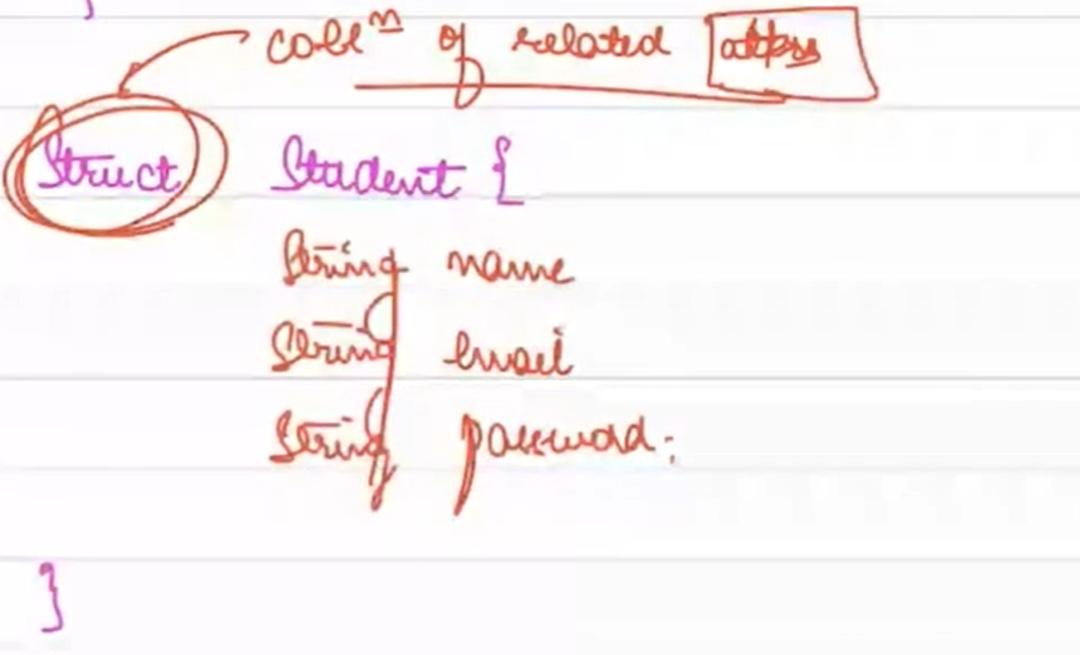 }
collⁿ of related
Struct Student {
String name
String email
String password;
}